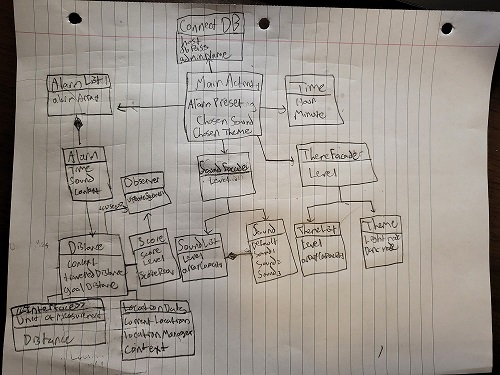 Connect DB
host
dbPass
adminName
Alarm List
alarm Array
Main Activity
Alarm Preset
Chosen Sound
Chosen Theme
Time
Hour
Minute
Alarm
Time
Sound
Context
Observer
Sound Facade
Level
Theme Facade
Level
Distance
Context
Traveled Distance
Goal Distance
Score
Score
Level
Sound List
Level
array Capacity
Sound
Default
Sound1
Sound2
Sound3
Theme List
Level
array Capacity
Theme
Light mode
Dark mode
<<Interface>>
Unit of Measurement
Distance
Location Data
Current Location
Location Manager
Context